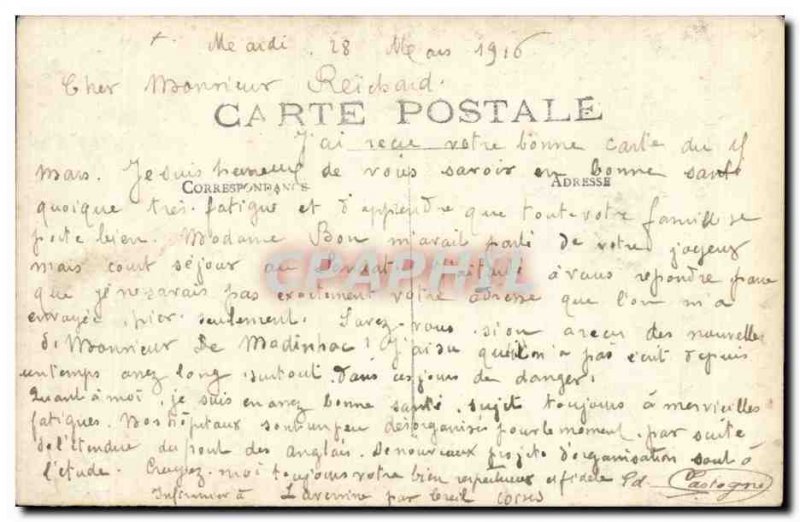 Mardi 28 Mars 1916
Cher Monsieur Reichard.
CARTE POSTALE
J'ai reçu votre bonne carte du
mars. Je suis heureux de vous savoir en bonne santé
CORRESPONDANCE ADRESSE
quoique très fatigué et d'apprendre que toute votre famille se
porte bien. Madame Bon m'avait parlé de votre joyeux
mais court séjour au à vous repondre parce
que je ne savais pas exactement votre adresse que l'on m'a
envoyée hier seulement. Savez-vous si on a reçu des nouvelles
de Monsieur De Madinhac? J'ai su qu'il n'a pas écrit depuis
un temps assez long surtout dans ces jours de danger.
Quant à moi, je suis en assez bonne santé, sujet toujours à merveilles
fatigues. Nos hôpitaux sont un peu désorganisés pour le moment, par suite
de l'étendue du front des anglais. De nouveaux projets d'organisation sont à
l'étude. Croyez-moi toujours votre bien respectueux et fidèle Ed. Castagné
Infirmier à Laversine par Creil (Oise)
CPAPHIL